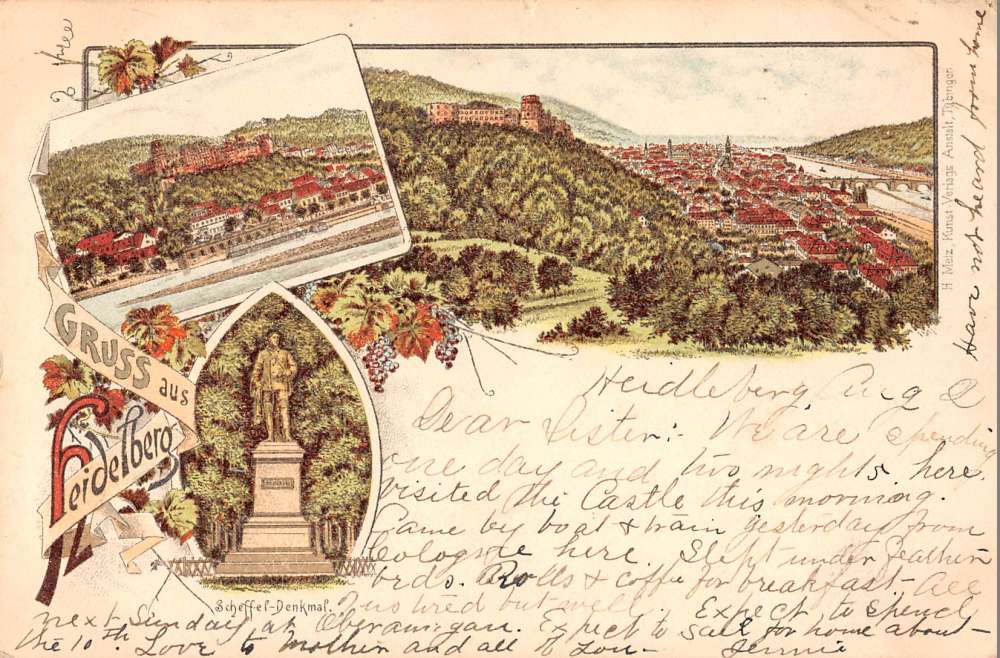 GRUSS aus
Heidelberg
Scheffel-Denkmal.
H. Metz, Kunst-Verlags-Anstalt, Tübingen.
Heidleberg, Aug 2
Dear Sister:- We are spending
one day and two nights here.
visited the Castle this morning.
Came by boat & train yesterday from
Cologne here. Slept under feather
beds. Rolls & coffee for breakfast - all
of us tired but well. Expect to spend
next Sunday at Oberamigau. Expect to sail for home about
the 10th. Love to mother and all of you - Jennie
Have not heard from home